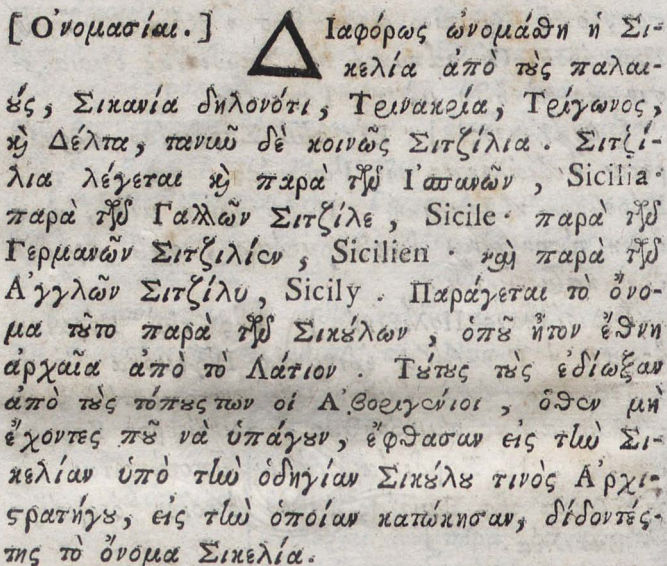 [Ὀνομασίαι.] Διαφόρως ὠνομάσθη ἡ Σι-
κελία ἀπὸ τοὺς παλαι-
οὺς, Σικανία δηλονότι, Τρινακρία, Τρίγωνος,
καὶ Δέλτα, τανῦν δὲ κοινῶς Σιτζίλια. Σιτζί-
λια λέγεται καὶ παρὰ τῶν Ἱσπανῶν, Sicilia·
παρὰ τῶν Γαλλῶν Σιτζίλε, Sicile· παρὰ τῶν
Γερμανῶν Σιτζιλίεν, Sicilien· καὶ παρὰ τῶν
Ἄγγλῶν Σιτζίλυ, Sicily. Παράγεται τὸ ὄνο-
μα τοῦτο παρὰ τῶν Σικούλων, ὁποῦ ἦτον ἔθνη
ἀρχαῖα ἀπὸ τὸ Λάτιον. Τούτους τοὺς ἐδίωξαν
ἀπὸ τοὺς τόπους των οἱ Ἀβοριγένιοι, ὅθεν μὴ
ἔχοντες ποῦ νὰ ὑπάγουν, ἔφθασαν εἰς τὴν Σι-
κελίαν ὑπὸ τὴν ὁδηγίαν Σικούλου τινὸς Ἀρχι-
στρατήγου, εἰς τὴν ὁποίαν κατῴκησαν, δίδοντές-
της τὸ ὄνομα Σικελία.